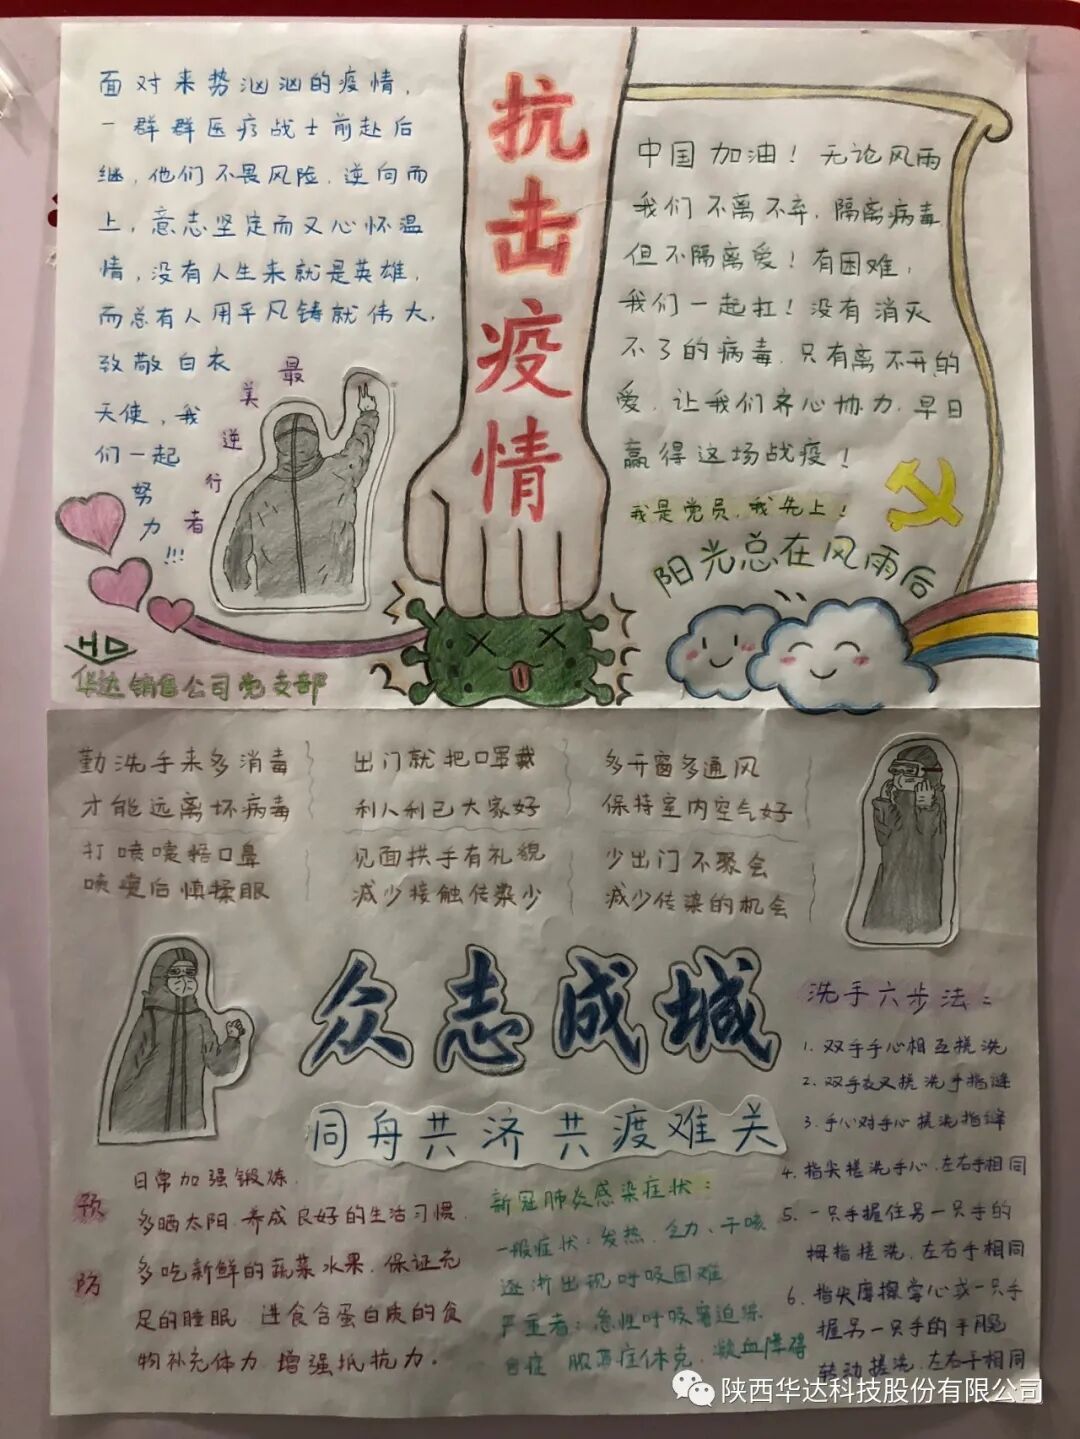 面对来势汹汹的疫情，
一群群医疗战士前赴后
继，他们不畏风险，逆向而
上，意志坚定而又心怀温
情，没有人生来就是英雄，
而总有人用平凡铸就伟大，
致敬白衣
天使，我
们一起
努
力
!!!
最
美
逆
行
者
抗
击
疫
情
中国加油！无论风雨
我们不离不弃，隔离病毒
但不隔离爱！有困难，
我们一起扛！没有消灭
不了的病毒，只有离不开的
爱，让我们齐心协力，早日
赢得这场战疫！
我是党员，我先上！
阳光总在风雨后
HD
华达销售公司党支部
勤洗手来多消毒
才能远离坏病毒
出门就把口罩戴
利人利己大家好
多开窗多通风
保持室内空气好
打喷嚏捂口鼻
喷嚏后慎揉眼
见面拱手有礼貌
减少接触传染少
少出门不聚会
减少传染的机会
众志成城
同舟共济共渡难关
预
防
日常加强锻炼，
多晒太阳，养成良好的生活习惯，
多吃新鲜的蔬菜水果，保证充
足的睡眠，进食含蛋白质的食
物补充体力，增强抵抗力。
新冠肺炎感染症状：
一般症状：发热，乏力、干咳
逐渐出现呼吸困难
严重者：急性呼吸窘迫综
合症，脓毒症休克，凝血障碍
洗手六步法：
1. 双手手心相互搓洗
2. 双手交叉搓洗手指缝
3. 手心对手心搓洗指缝
4. 指尖搓洗手心，左右手相同
5. 一只手握住另一只手的
拇指搓洗，左右手相同
6. 指尖摩擦掌心或一只手
握另一只手的手腕
转动搓洗，左右手相同
陕西华达科技股份有限公司